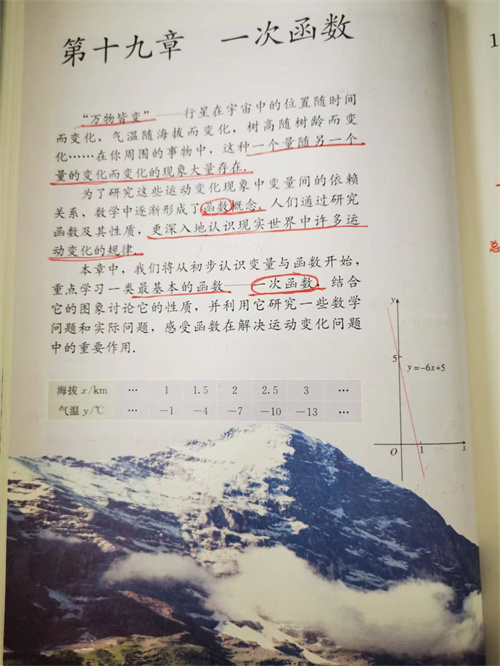 第十九章 一次函数
“万物皆变”——行星在宇宙中的位置随时间
而变化，气温随海拔而变化，树高随树龄而变
化……在你周围的事物中，这种一个量随另一个
量的变化而变化的现象大量存在.
为了研究这些运动变化现象中变量间的依赖
关系，数学中逐渐形成了函数概念.人们通过研究
函数及其性质，更深入地认识现实世界中许多运
动变化的规律.
本章中，我们将从初步认识变量与函数开始，
重点学习一类最基本的函数——一次函数，结合
它的图象讨论它的性质，并利用它研究一些数学
问题和实际问题，感受函数在解决运动变化问题
中的重要作用.
海拔 x/km … 1 1.5 2 2.5 3 …
气温 y/℃ … −1 −4 −7 −10 −13 …
y
5
y=−6x+5
O 1 x
1